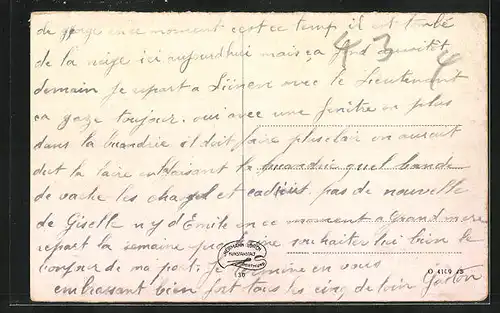 de gorge en ce moment c'est ce temp il est tombé
de la neige ici aujourdhui mais ça fond
demain je repart a avec le Lieutenant
ça gaze toujour. oui avec une fenêtre en plus
dans la buandrie il doit faire plus clair on aurait
dut la faire en faisant la buandrie quel bande
de vache les et pas de nouvelle
de Giselle n y d'Emile en ce moment a Grand mère
repart la semaine souhaiter lui bien le
bonjour de ma part. je termine en vous
embrassant bien fort tous les cinq de loin Gaston
4 3 4
O 4160 45